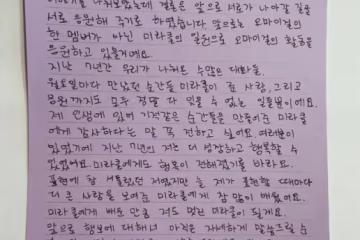 이야기를 나눠보았는데 결론은 앞으로 서로가 나아갈 길을
서로 응원해 주기로 하였습니다 앞으로는 오마이걸의
한 멤버가 아닌 미라클의 일원으로 오마이걸의 활동을
응원하고 있을거예요.
지난 7년간 우리가 나눠온 수많은 대화들.
월요일마다 만났던 순간들 미라클이 준 사랑, 그리고
응원까지도 모두 정말 다 잊을 수 없는 일들뿐이에요.
제 인생에 있어 기적같은 순간들을 만들어준 미라클
에게 감사하다는 말 꼭 전하고 싶어요. 여러분이
있었기에 지난 7년의 저는 더 성장하고 행복할 수
있었어요. 미라클에게도 행복이 전해졌기를 바라요.
표현에 참 서툴렀던 저였지만 늘 제가 표현할 때마다
더 큰 사랑을 보여준 미라클에게 참 많이 배웠어요.
미라클에게 배운 만큼 저도 멋진 미라클이 될게요.
앞으로 행보에 대해서 아직은 자세하게 말씀드릴 수